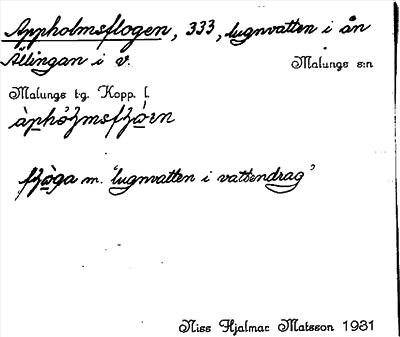 Appholmsflogen, 333, lugnvatten i ån
Ällingan i v.
Malungs sn
Malungs tg. Kopp. l.
àphòlmsflo̱i̱n
flò̱ga m. 'lugnvatten i vattendrag'
Niss Hjalmar Matsson 1931